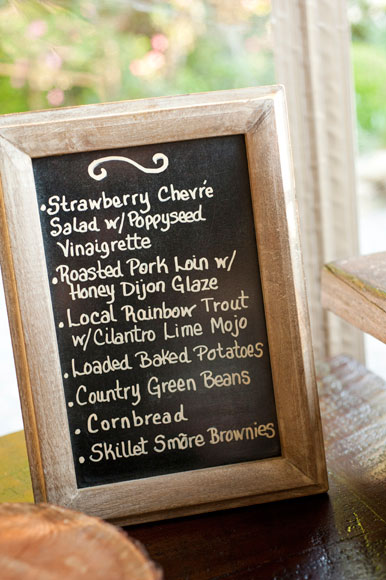 • Strawberry Chevré
Salad w/ Poppyseed
Vinaigrette
• Roasted Pork Loin w/
Honey Dijon Glaze
• Local Rainbow Trout
w/Cilantro Lime Mojo
• Loaded Baked Potatoes
• Country Green Beans
• Cornbread
• Skillet Smõre Brownies